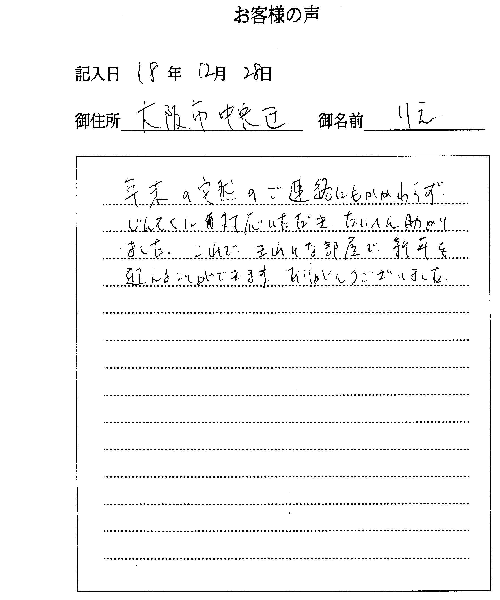 お客様の声
記入日 18年 12月 28日
御住所 大阪市中央区 御名前 りえ
年末の突然のご連絡にもかかわらず
じんそくに対応いただき たいへん助かり
ました。これで きれいな部屋で 新年を
迎えることができます ありがとうございました。